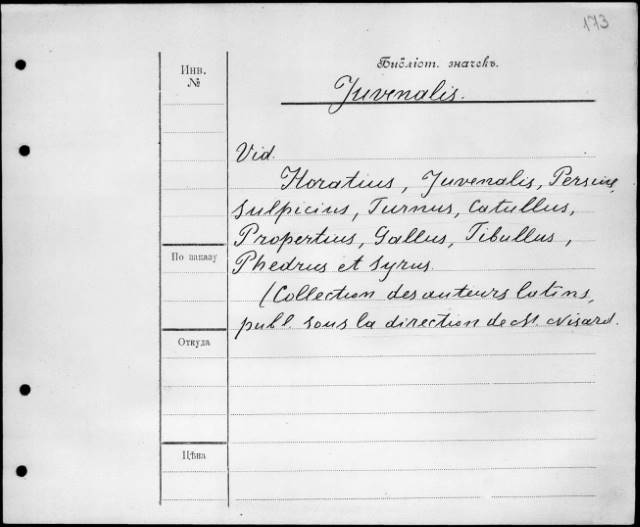 173
Инв.
№
Библіот. значекъ.
Juvenalis.
Vid.
Horatius, Juvenalis, Persius,
Sulpicius, Turnus, Catullus,
Propertius, Gallus, Tibullus,
Phedrus et Syrus.
По заказу
(Collection des auteurs latins,
publ. sous la direction de M. Nisard.
Откуда
Цѣна